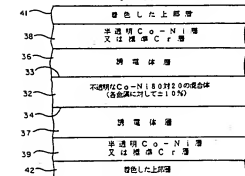 41 着色した上部層
38 半透明Co-Ni層
又は標準Cr層
36 誘電体層
33
32 不透明なCo-Ni80対20の混合体
(各金属に対して±10%)
34
37 誘電体層
39 半透明Co-Ni層
又は標準Cr層
42 着色した上部層